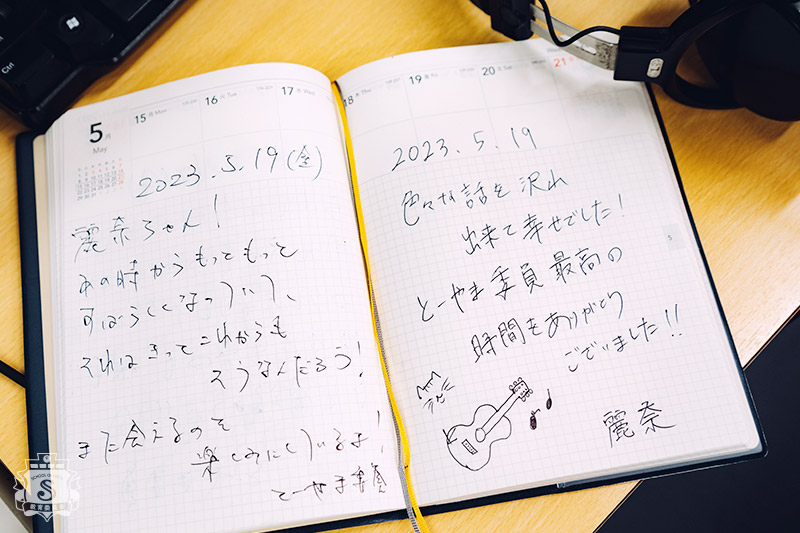 Ctrl
5月
May
15 月 Mon
16 火 Tue
17 水 Wed
2023.5.19(金)
麗奈ちゃん!
あの時からもっともっと
可はらしくなっていて、
それはきっとこれからも
そうなんだろう!
また会えるのを
楽しみにしているよ!
とーやま委員
18 木 Thu
19 金 Fri
20 土 Sat
21
2023.5.19
色々な話を沢山
出来て幸せでした!
とーやま委員 最高の
時間をありがとう
ございました!!
麗奈
5
SCHOOL OF
S
教育委員会